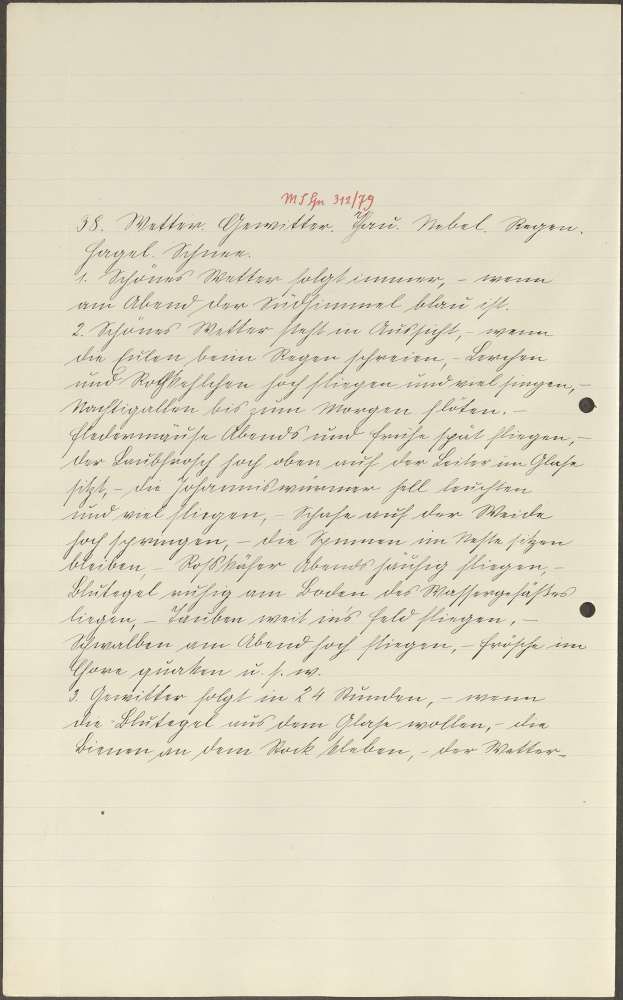 MSGn 312/79
38. Wetter. Gewitter. Thau. Nebel. Regen.
Hagel. Schnee.
1. Schönes Wetter folgt immer, – wenn
am Abend der Südhimmel blau ist.
2. Schönes Wetter steht in Aussicht, – wenn
die Eulen beim Regen schreien, – Lerchen
und Rothkehlchen hoch fliegen und viel singen, –
Nachtigallen bis zum Morgen flöten. –
Fledermäuse Abends und frühe spät fliegen, –
der Laubfrosch hoch oben auf der Leiter im Glase
sitzt, – die Johanniswürmer hell leuchten
und viel fliegen, – Schafe auf der Weide
hoch springen, – die Spinnen im Neste sitzen
bleiben, – Roßkäfer Abends häufig fliegen, –
Blutegel ruhig am Boden des Wassergefäßes
liegen, – Tauben weit in's Feld fliegen, –
Schwalben am Abend hoch fliegen, – Frösche im
Chore quaken u. s. w.
3. Gewitter folgt in 24 Stunden, – wenn
die Blutegel aus dem Glase wollen, – die
Bienen an dem Stock kleben, – der Wetter-